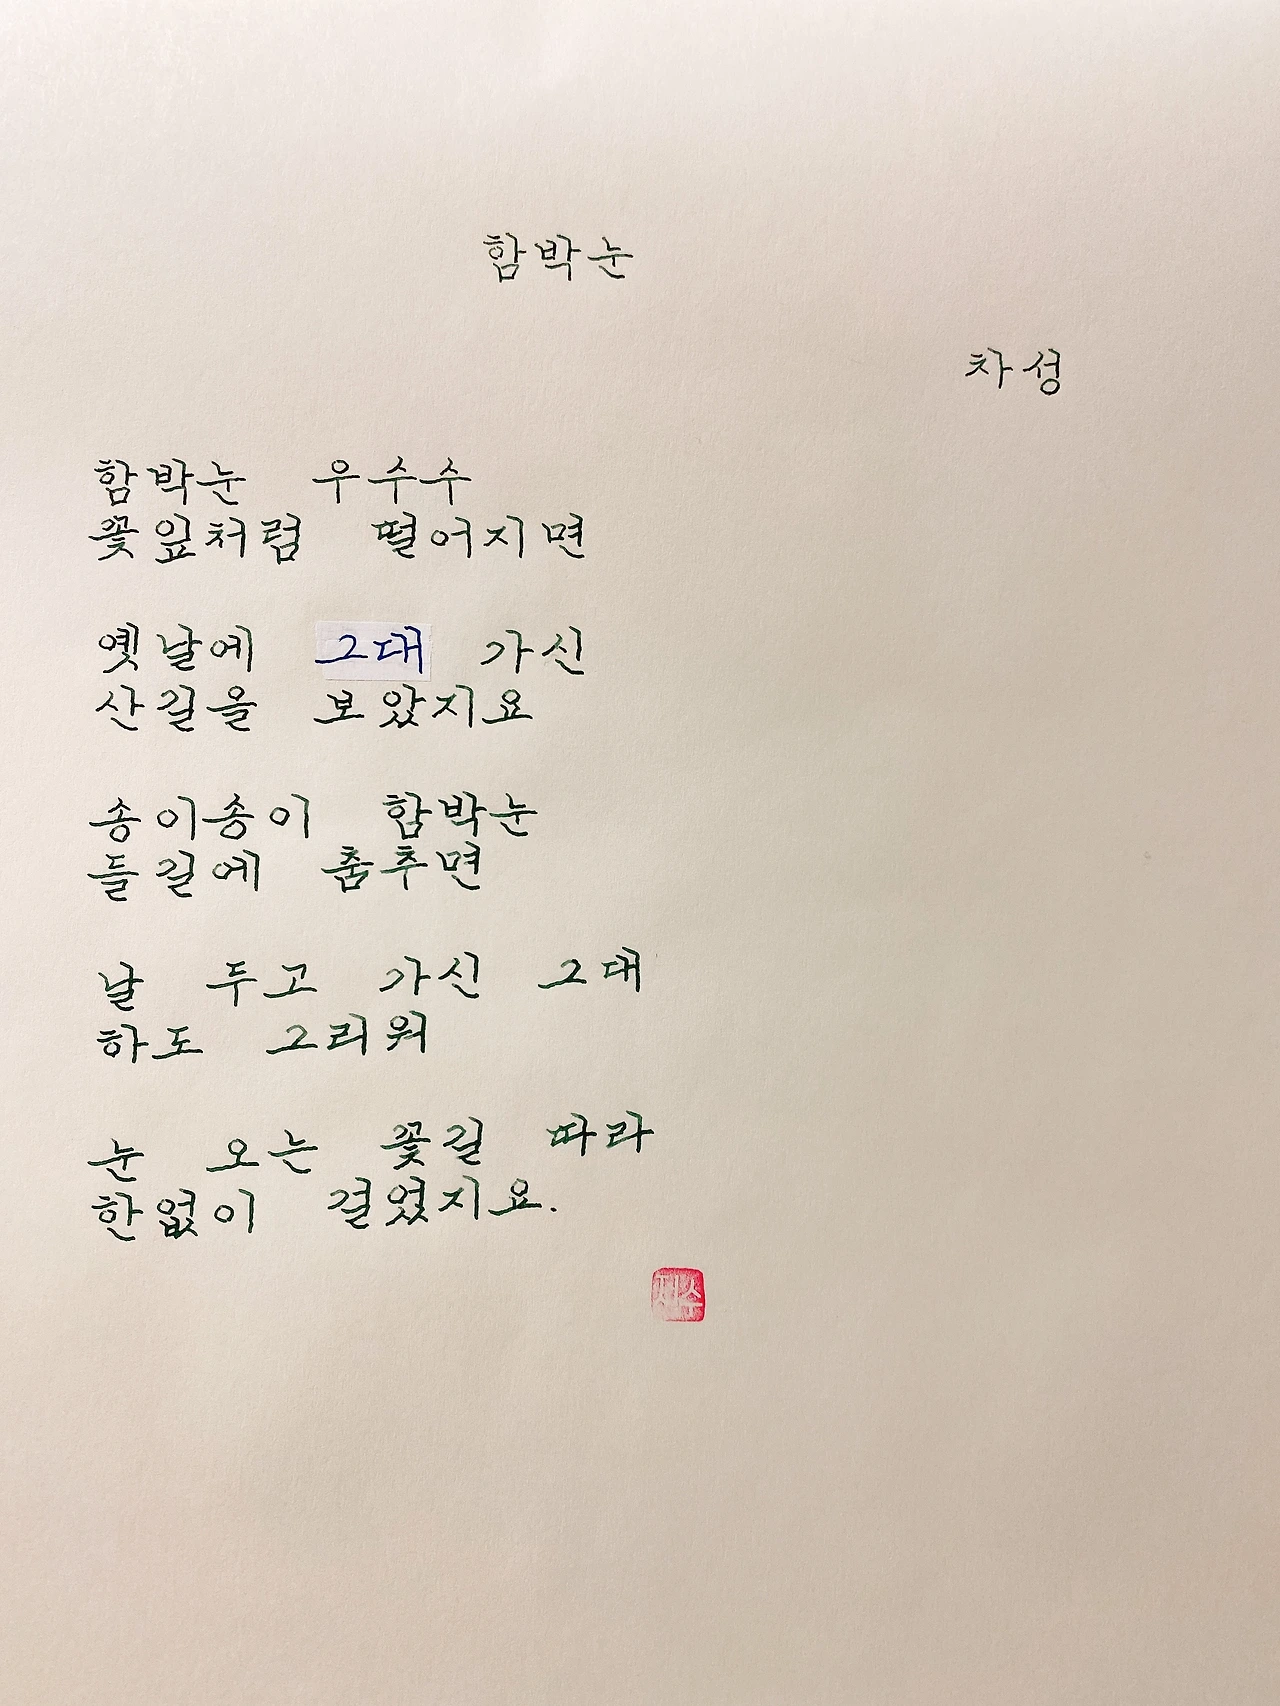 함박눈
차성
함박눈 우수수
꽃잎처럼 떨어지면
옛날에 그대 가신
산길을 보았지요
송이송이 함박눈
들길에 춤추면
날 두고 가신 그대
하도 그리워
눈 오는 꽃길 따라
한없이 걸었지요.